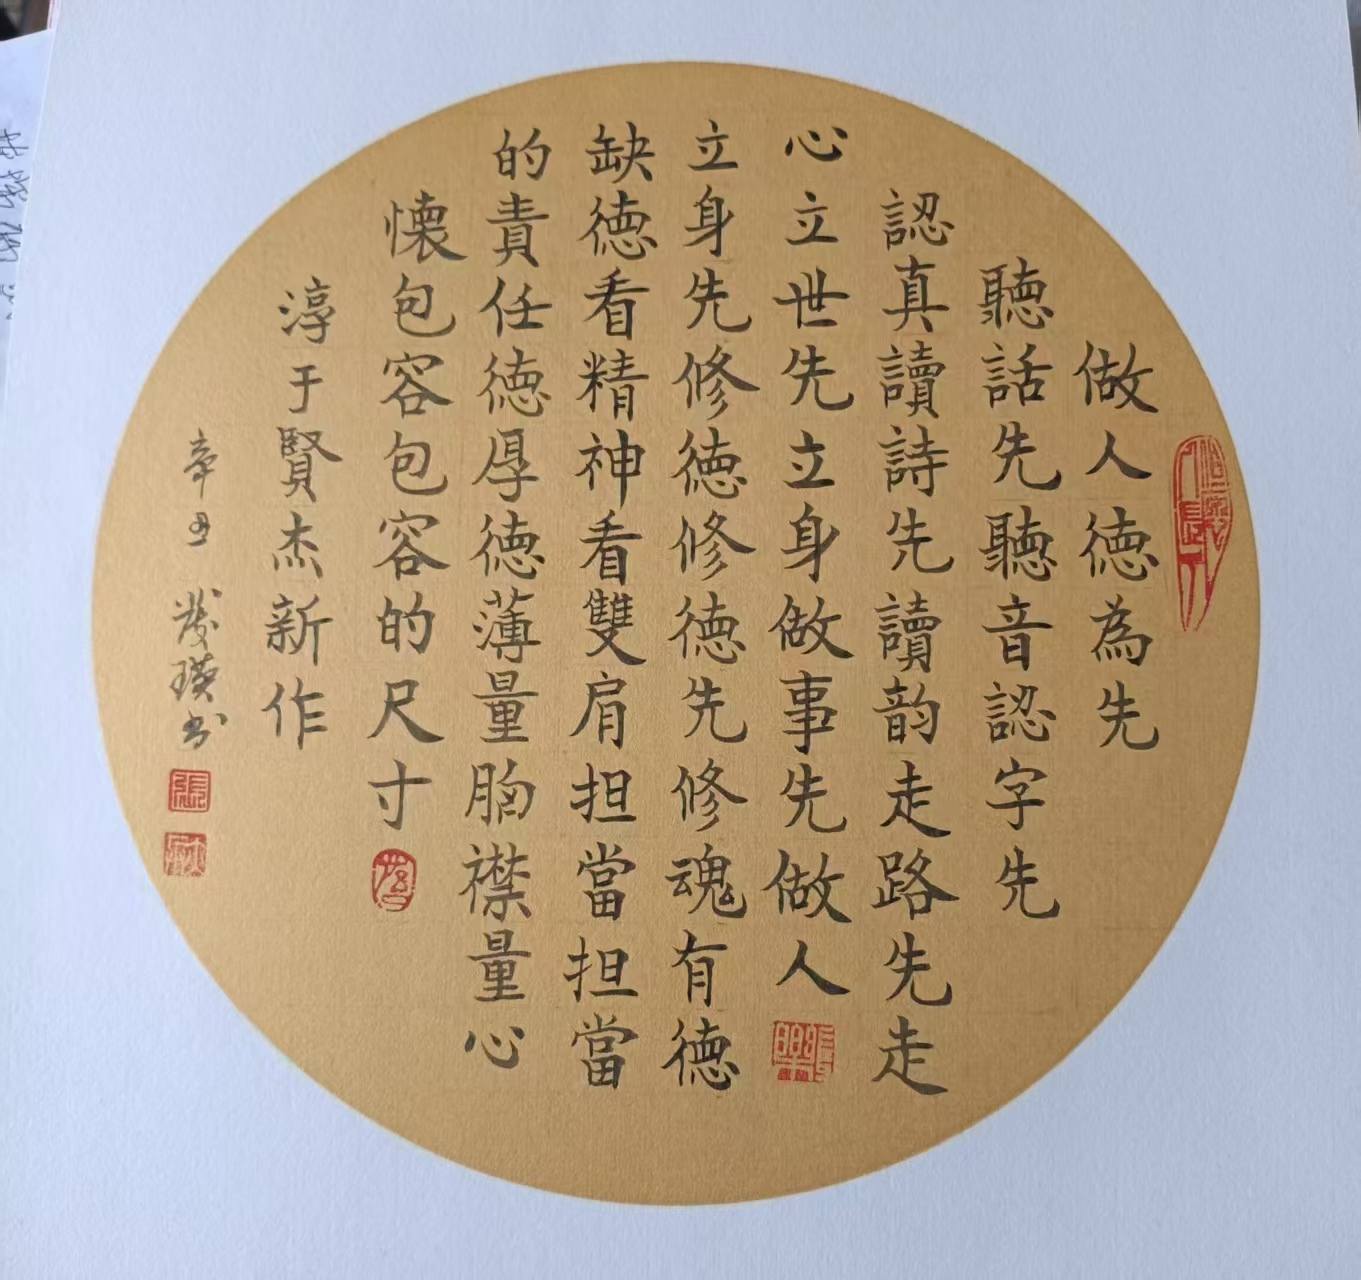 做人德為先
聽話先聽音認字先
認真讀詩先讀韵走路先走
心立世先立身做事先做人
立身先修德修德先修魂有德
缺德看精神看雙肩担當担當
的責任德厚德薄量胸襟量心
懷包容包容的尺寸
淳于賢杰新作
辛丑 茂瑛书
張